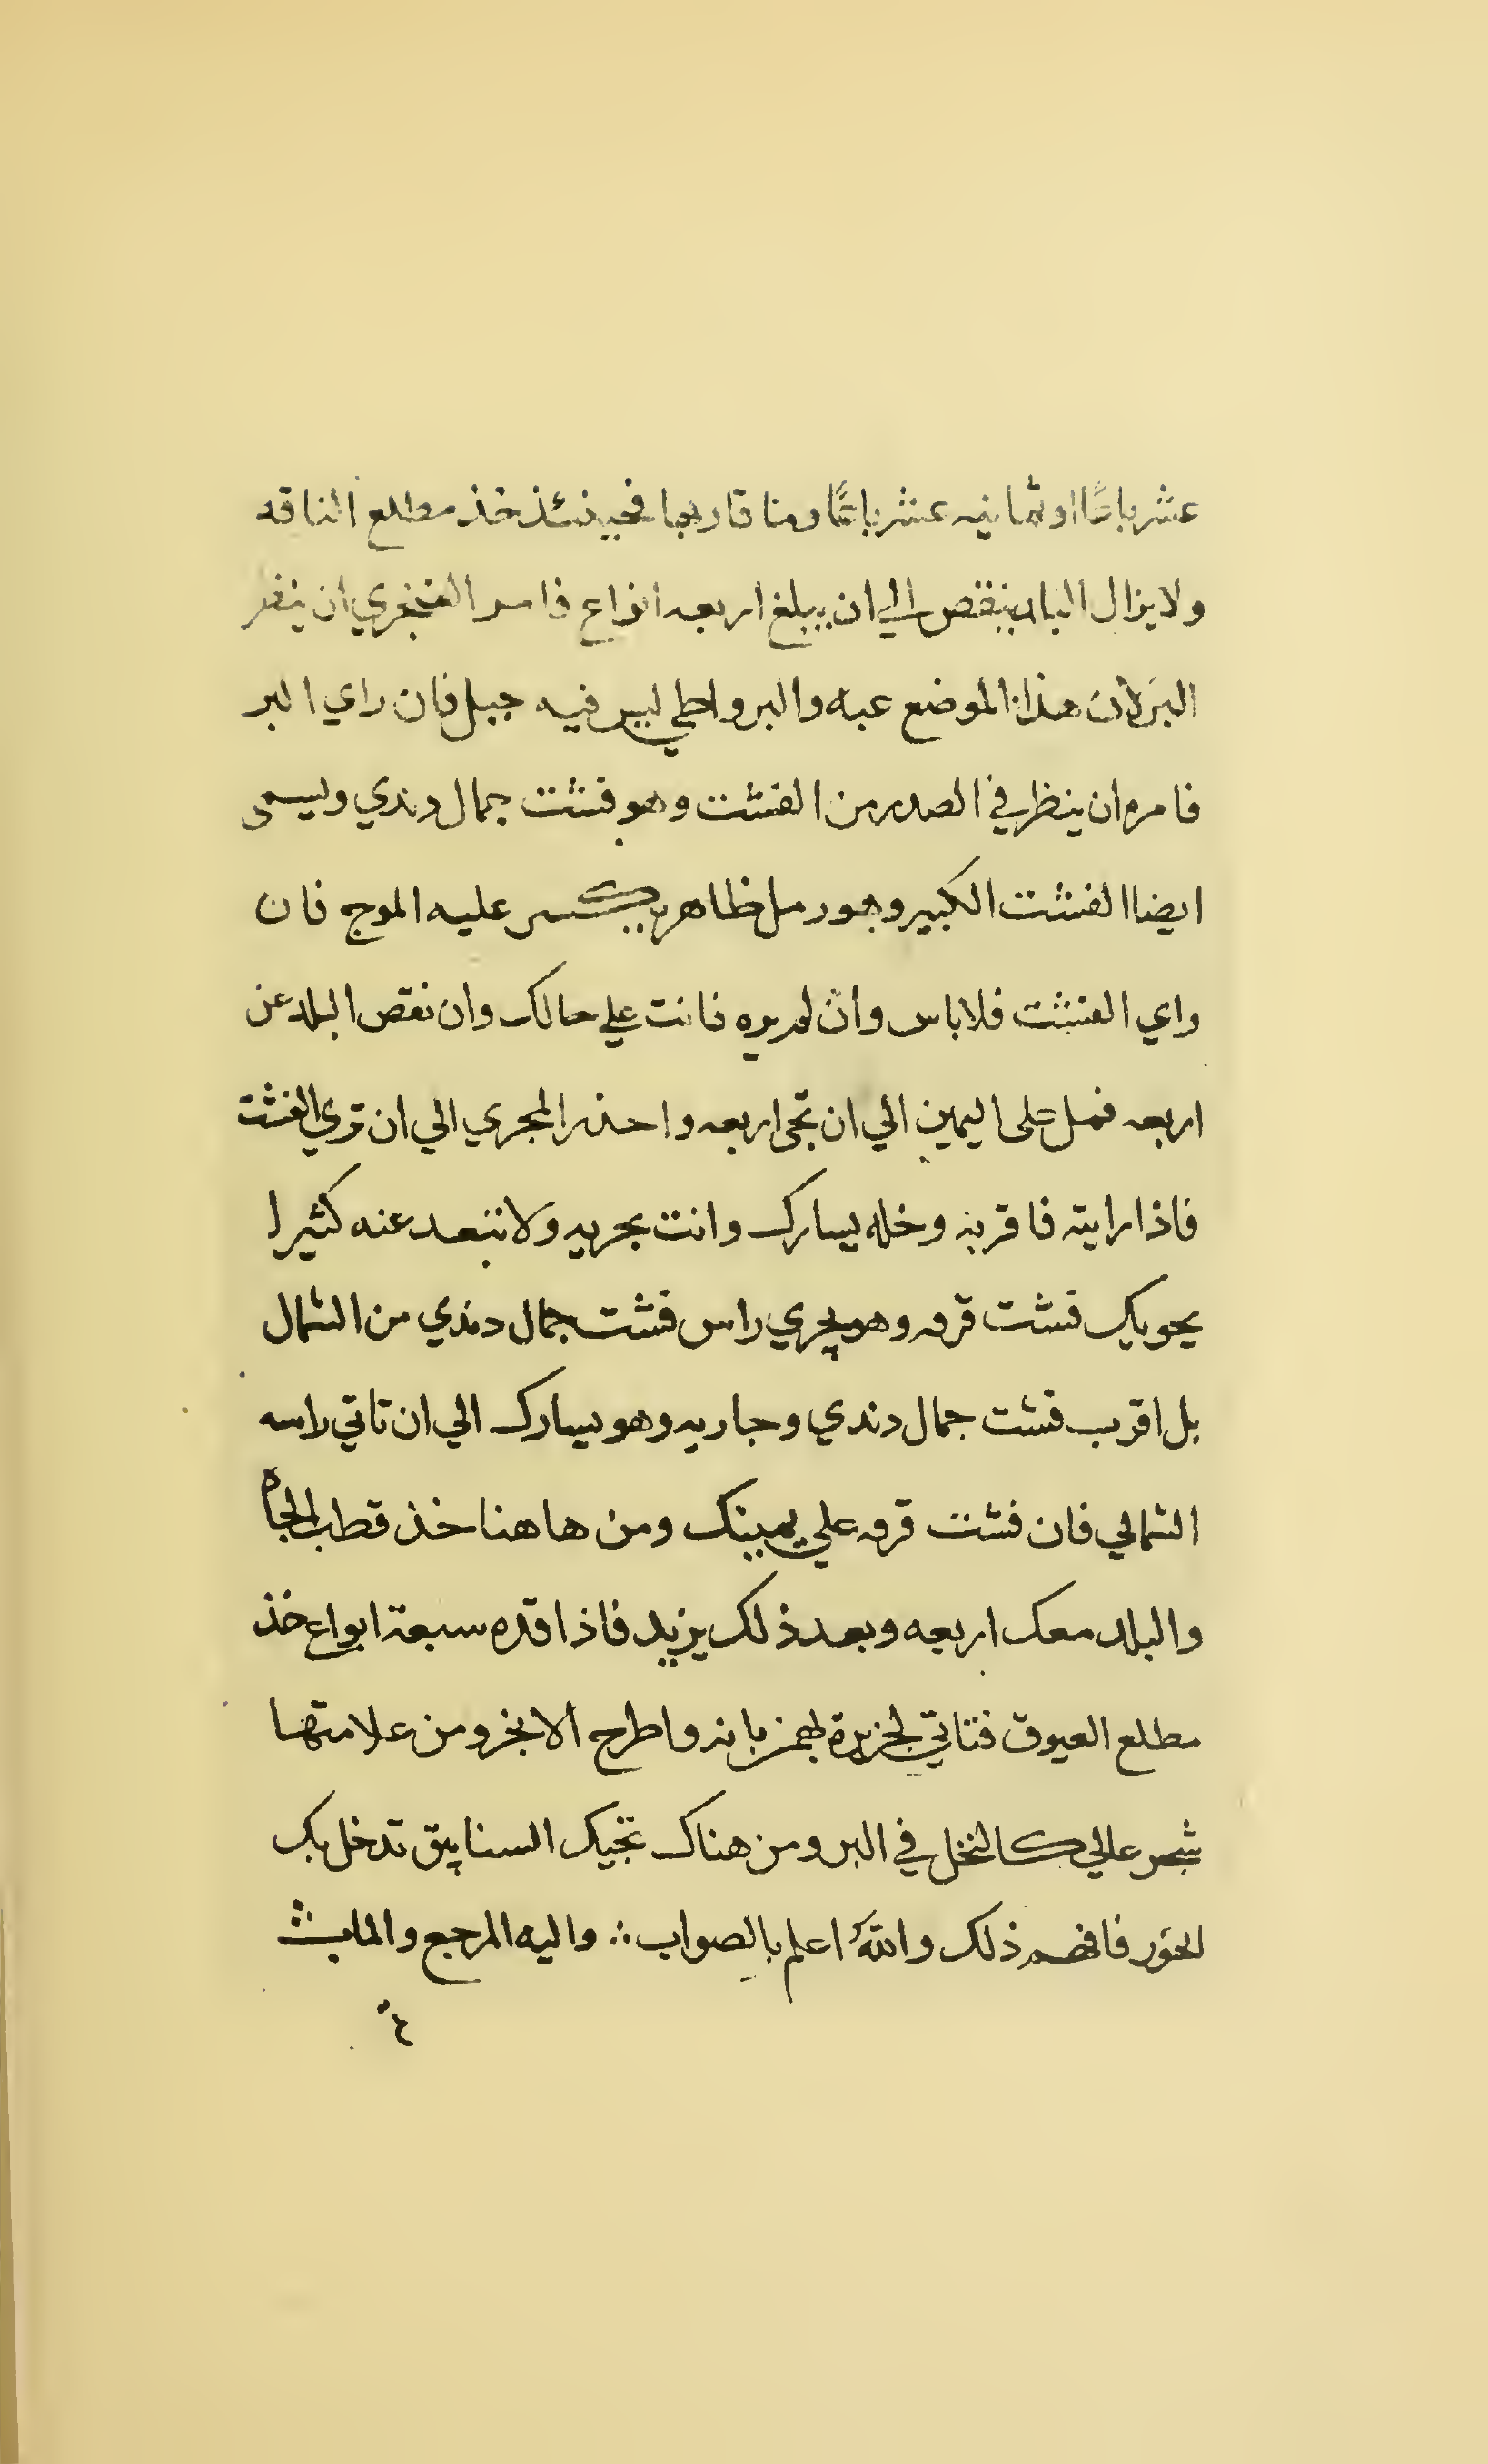 عشر باعًا او ثمانيه عشر باعًا وما قاربها فحينئذ خذ مطلع الناقه
ولا يزال البلد ينقص الي ان يبلغ اربعه ابواع فامر الفنجري ان ينظر
البر لان هذا الموضع عبه والبر واطي ليس فيه جبل فان راي البر
فامره ان ينظر في الصدر من الفشت وهو فشت جمال وندي ويسمى
ايضا الفشت الكبير وهو رمل ظاهر يتكسر عليه الموج فان
راي الفشت فلا باس وان لم يره فانت علي حالك وان نقص البلد عن
اربعه فمل على اليمين الي ان تجي اربعه واحذر المجري الي ان تري الفشت
فاذا رايته فاقربه وخله يسارك وانت بحريه ولا تبعد عنه كثيرا
يحويك فشت قرمه وهو بحري راس فشت جمال دندي من الشمال
بل اقرب فشت جمال دندي وجاريه وهو يسارك الي ان تاتي راسه
الشمالي فان فشت قرمه علي يمينك ومن هاهنا خذ قطب الجاه
والبلد معك اربعه وبعد ذلك يزيد فاذا قده سبعة ابواع خذ
مطلع العيوق فتاتي لجزيرة بهمزبانه واطرح الانجر ومن علامتها
شجر عالي كالنخل في البر ومن هناك تجيك السنابيق تدخل بك
الخور فافهم ذلك والله اعلم بالصواب ∴ واليه المرجع والماب